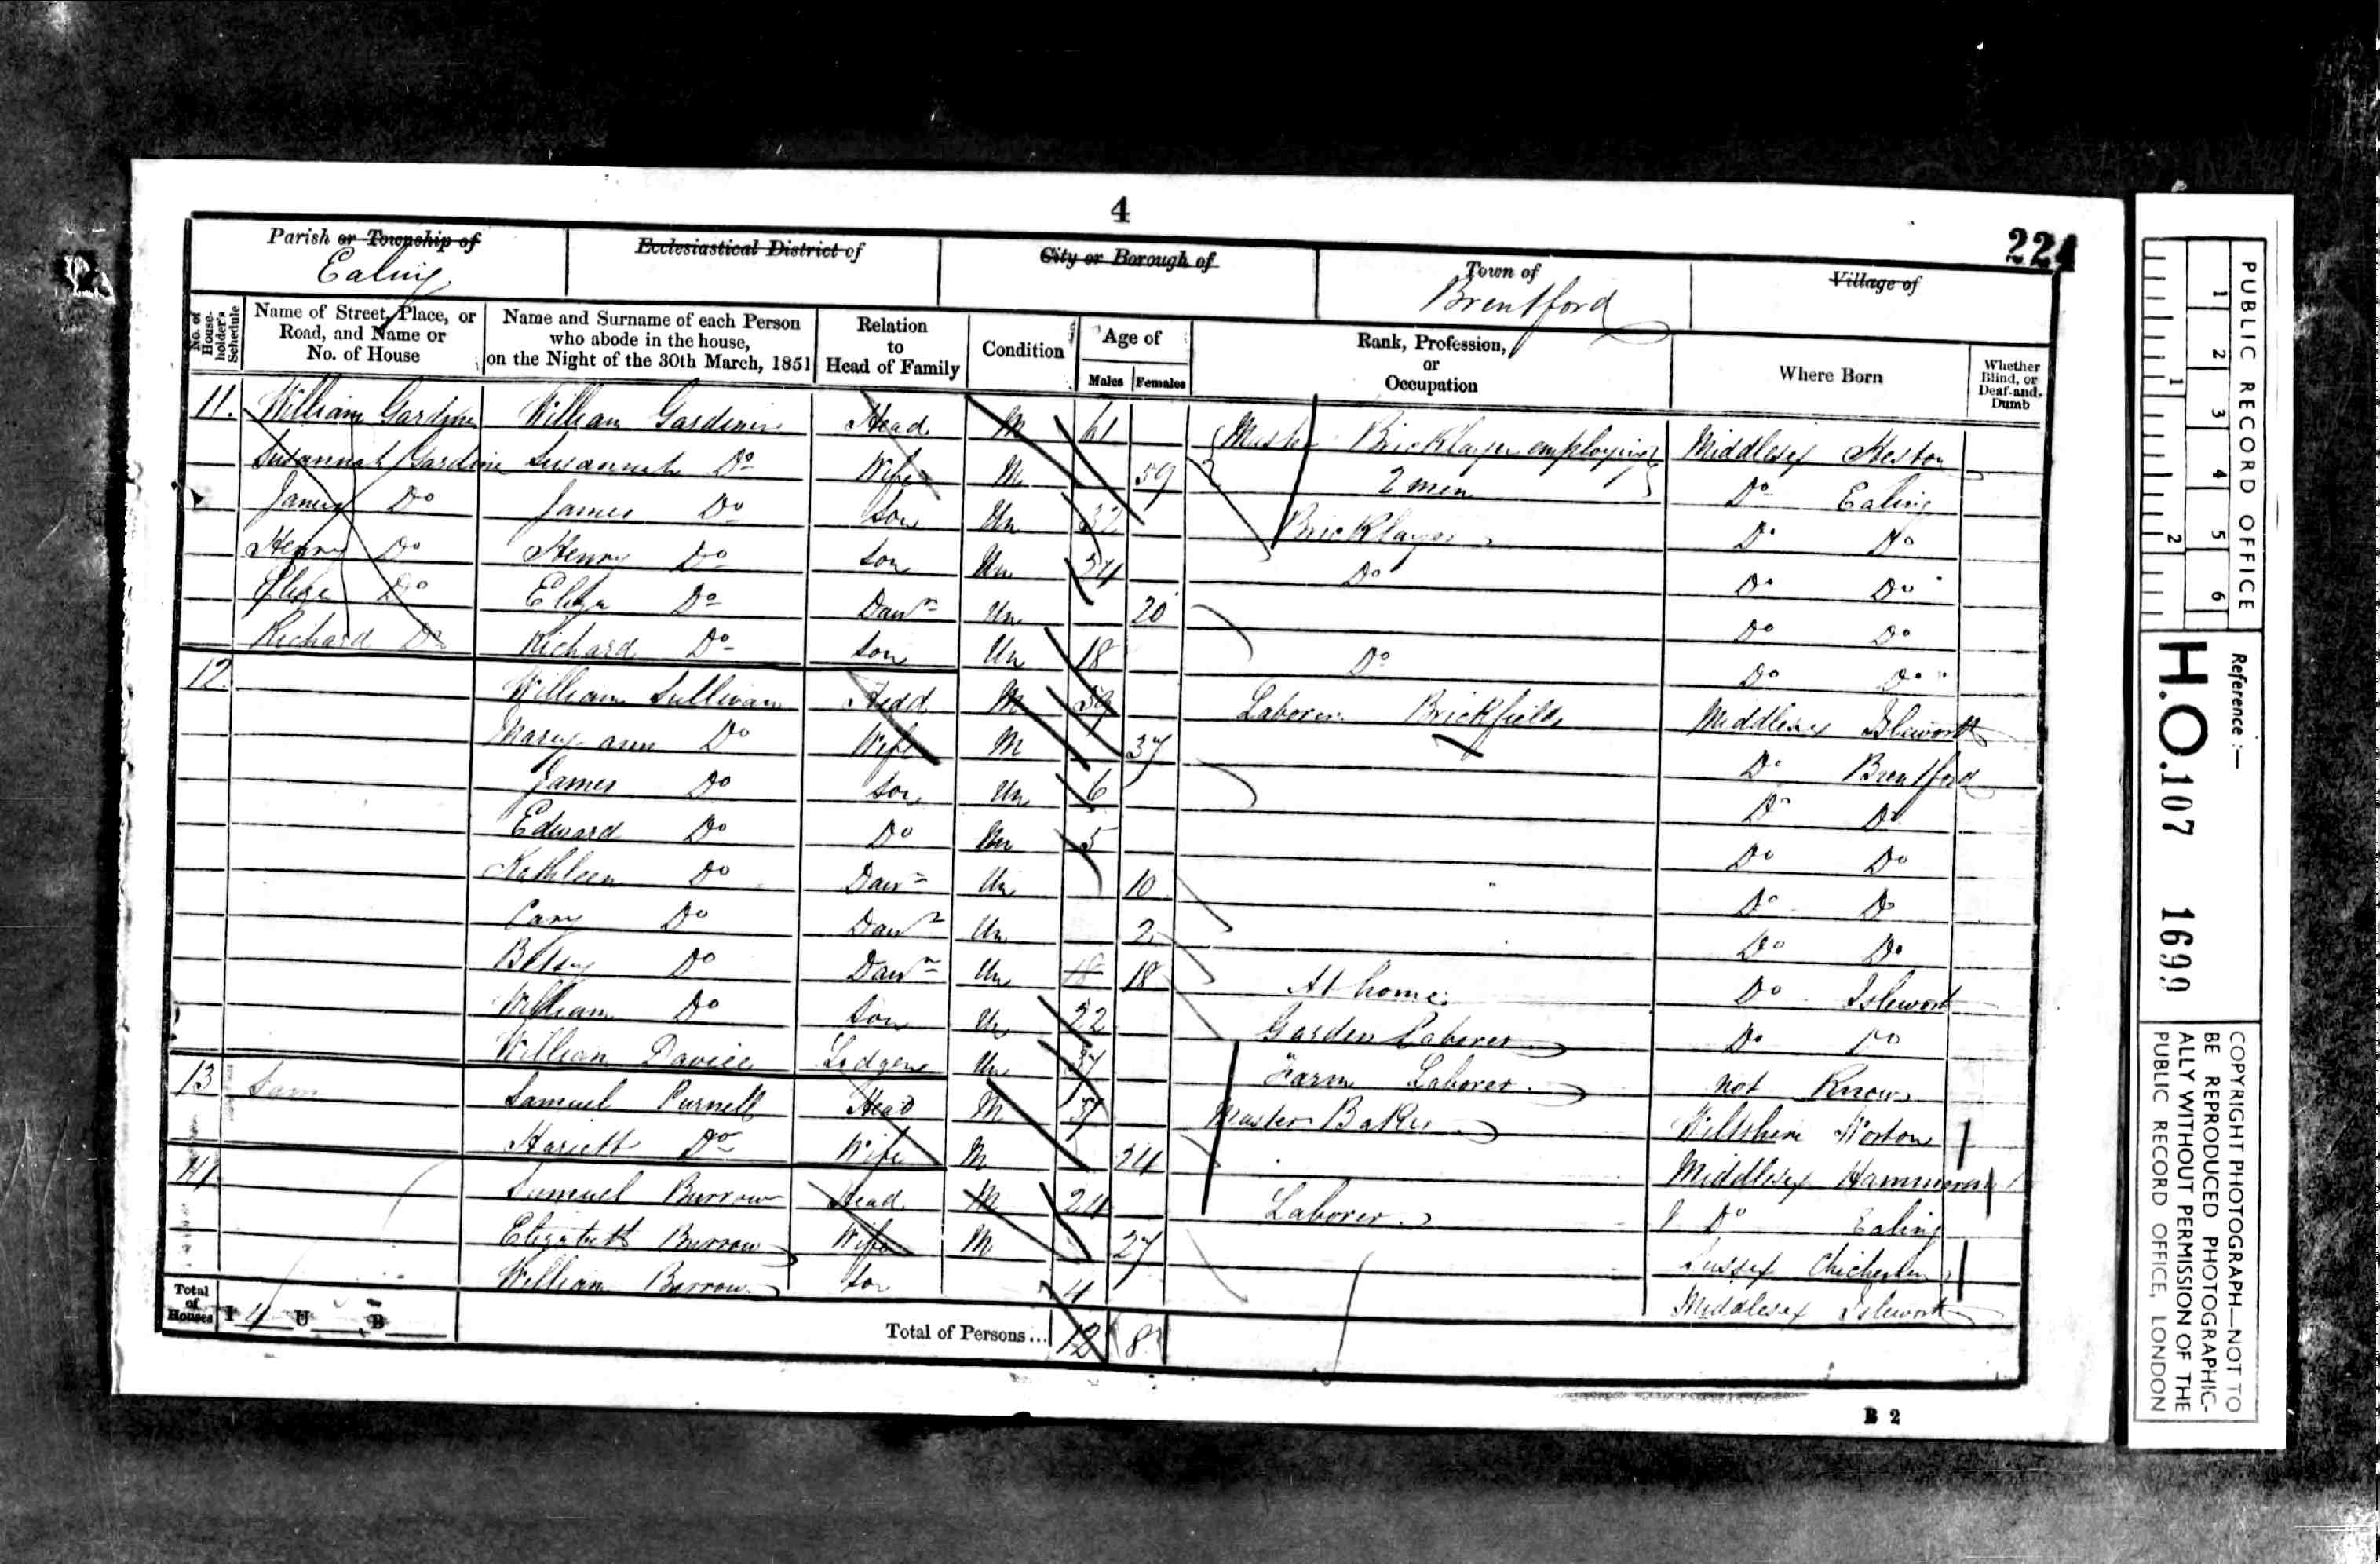 4
224
Parish or Township of
Ealing
Ecclesiastical District of
City or Borough of
Town of
Brentford
Village of
No. of House-holder's Schedule
Name of Street, Place, or Road, and Name or No. of House
Name and Surname of each Person who abode in the house, on the Night of the 30th March, 1851
Relation to Head of Family
Condition
Age of
Males Females
Rank, Profession, or Occupation
Where Born
Whether Blind, or Deaf-and-Dumb
11. William Gardiner William Gardiner Head M 61 Master Bricklayer employing Middlesex Heston
Susannah Gardine Susannah Do Wife M 59 2 men Do Ealing
James Do James Do Son Un 32 Bricklayer Do Do
Henry Do Henry Do Son Un 24 Do Do Do
Eliza Do Eliza Do Daur Un 20 Do Do
Richard Do Richard Do Son Un 18 Do Do Do
12. William Sullivan Head M 39 Laborer Brickfields Middlesex Isleworth
Mary ann Do Wife M 37 Do Brentford
James Do Son Un 6 Do Do
Edward Do Do Un 5 Do Do
Kathleen Do Daur Un 10 Do Do
Do Daur Un 2 Do Do
Betsy Do Daur Un 18 18 At home Do Isleworth
William Do Son Un 22 Garden Laborer Do Do
William Lodger Un 37 Farm Laborer not Known
13 Sam Samuel Purnell Head M Master Baker Wiltshire
Hariett Do Wife M 24 Middlesex
Samuel Burrow Head M 24 Laborer Do Ealing
Elizabeth Burrow Wife M 27 Sussex Chichester
William Burrow Son 4 Middlesex Isleworth
Total of Houses I 4 U B
Total of Persons... 12 8
B 2
PUBLIC RECORD OFFICE
1 2 3 4 5 6
1 2
Reference :—
H.O. 107 1699
COPYRIGHT PHOTOGRAPH—NOT TO
BE REPRODUCED PHOTOGRAPHIC-
ALLY WITHOUT PERMISSION OF THE
PUBLIC RECORD OFFICE, LONDON